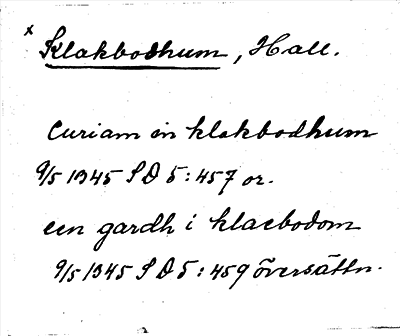 x Klakbodhum, Hall.
curiam in klakbodhum
9/5 1345 SD 5:457 or.
een gardh i klacbodom
9/5 1345 SD 5:459 översättn.